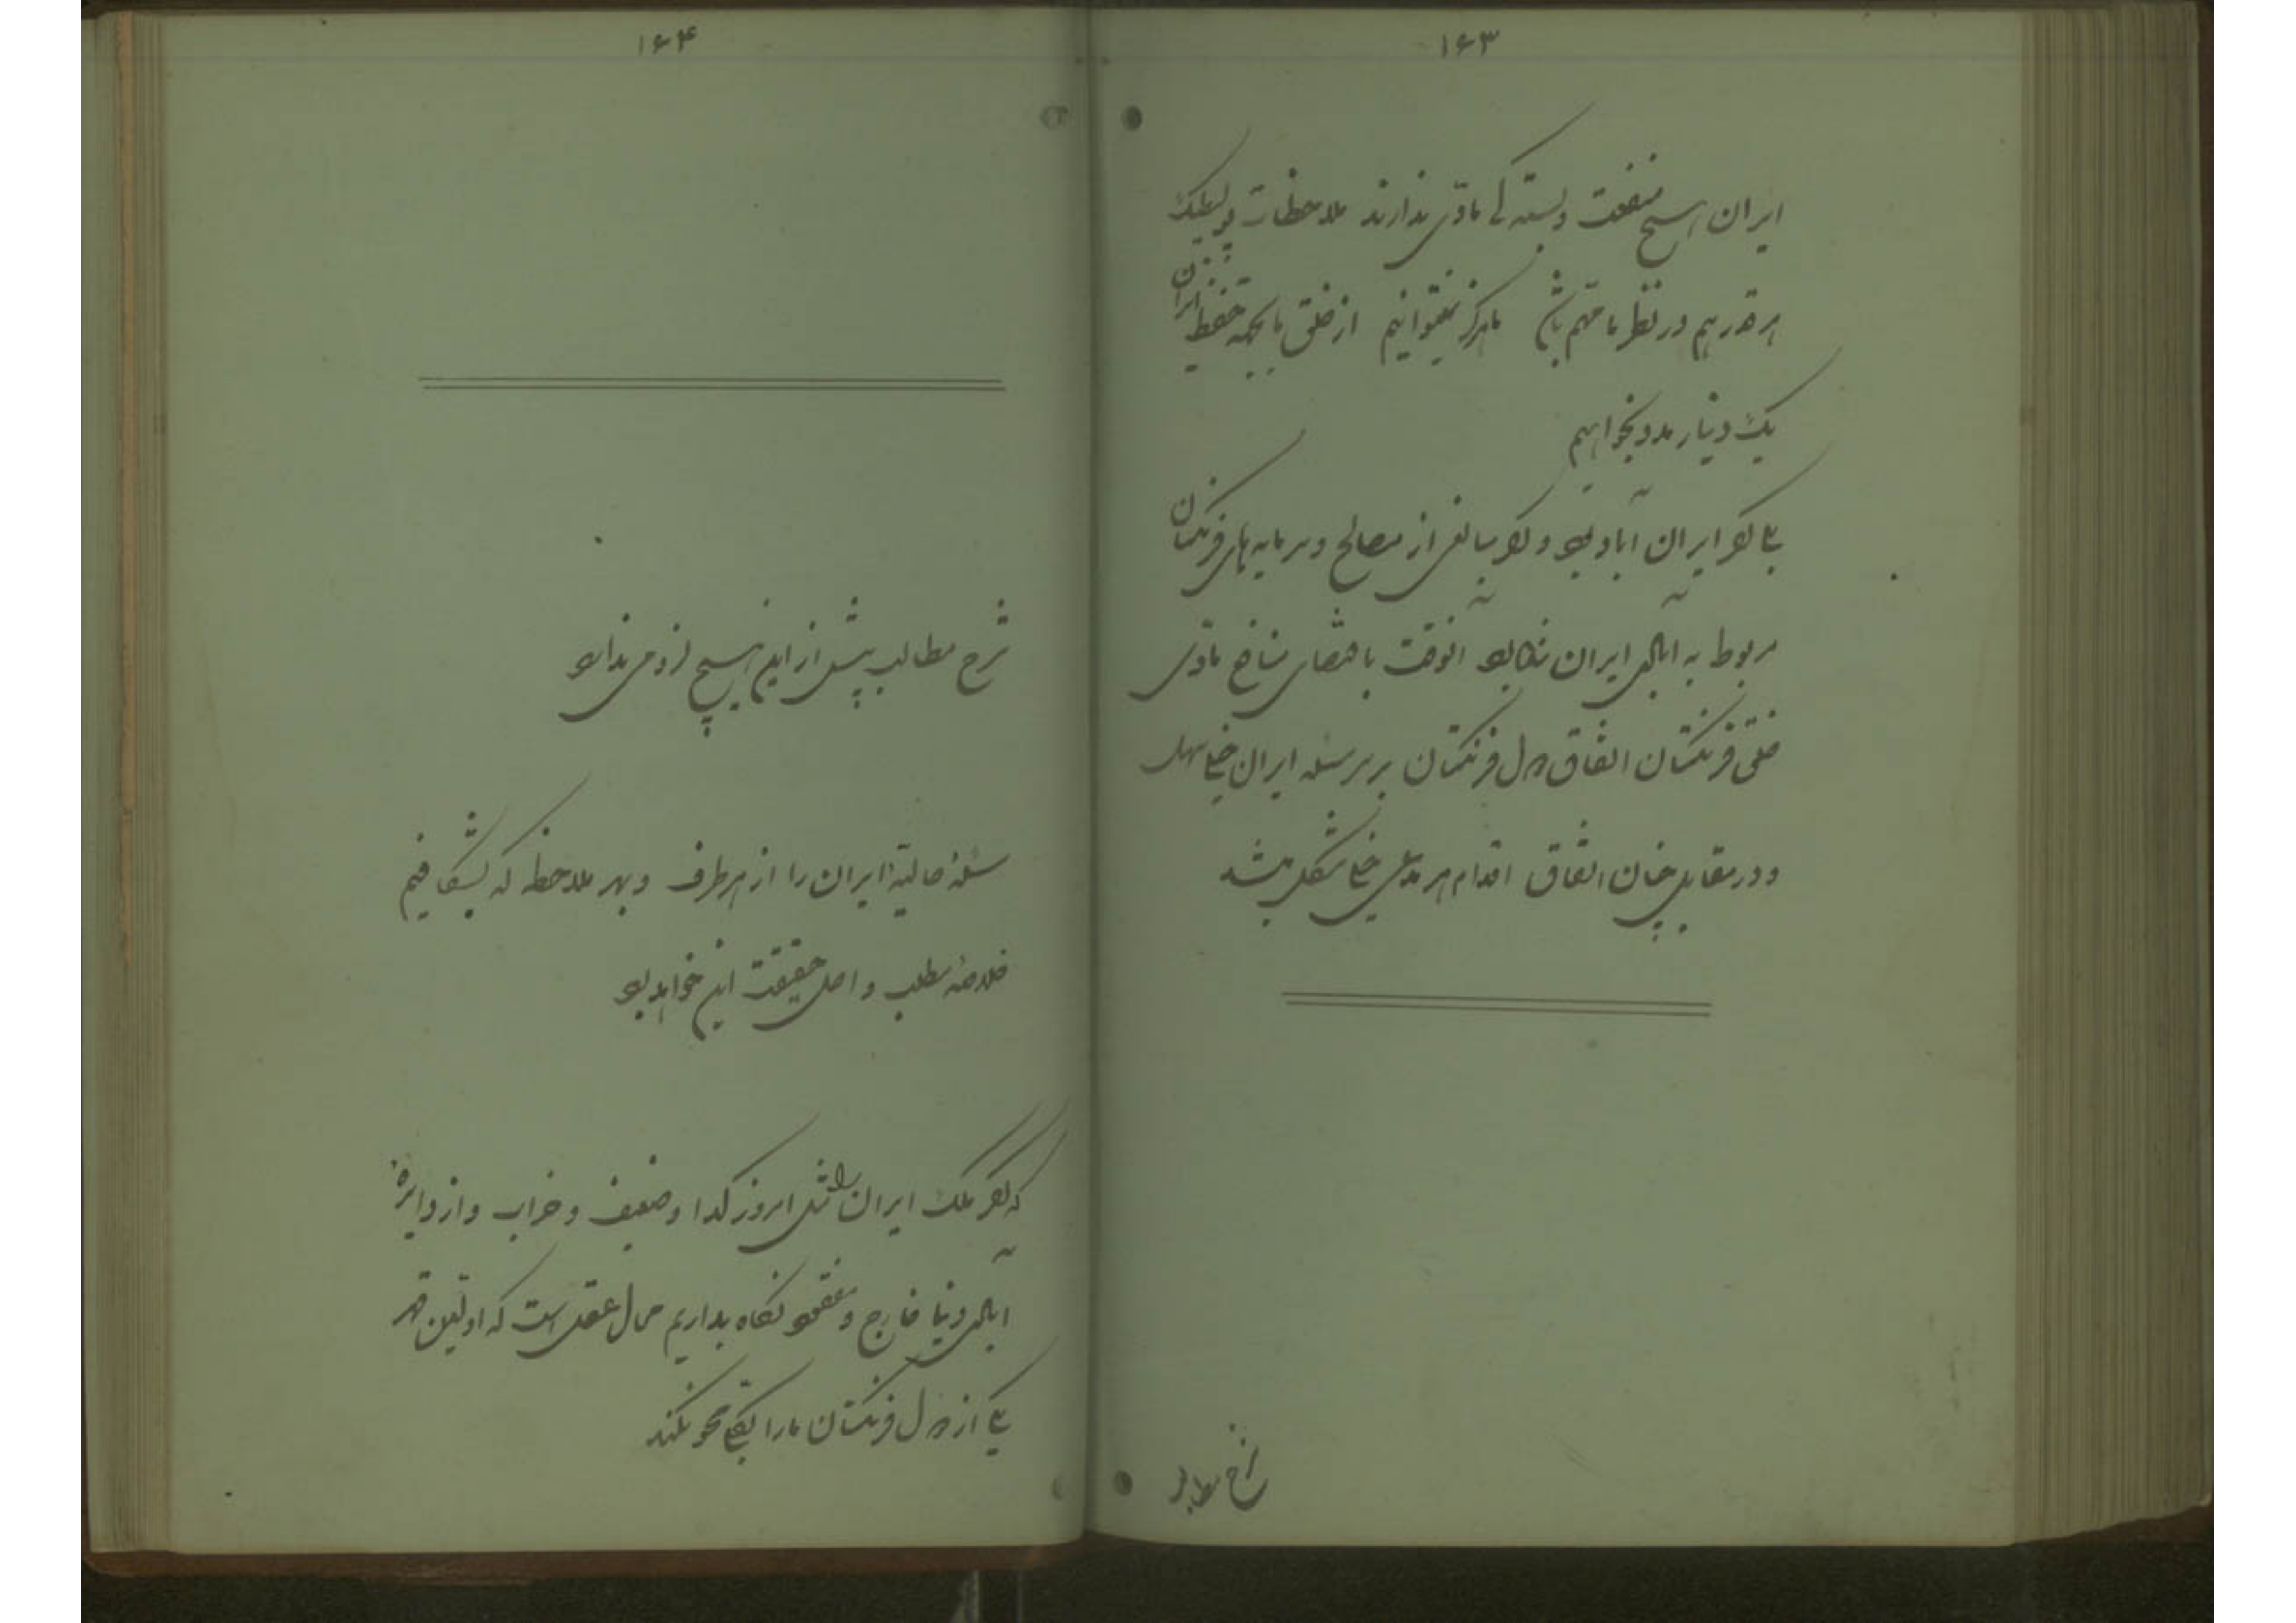 ۱۶۳
ایران هیچ منفعت و بستگی مادی ندارند ملاحظات پولیتیک
هر قدر هم در نظر ما مهم باشد ما هرگز نمیتوانیم از خلق ما بجهة حفظ ایران
یک دینار مدد بخواهیم
اما اگر ایران آباد بشود و اگر مبالغی از مصالح و سرمایه‌های فرنگستان
مربوط به اهالی ایران شده باشد آنوقت باقتضای منافع مادی
خلق فرنگستان اتفاق دول فرنگستان بر سر مسئله ایران خیلی سهل
و در مقابل چنان اتفاق اقدام هر مدعی خیلی مشکل میشد
شرح مطالب
۱۶۴
شرح مطالب بیش از این هیچ لزومی ندارد
مسئلهٔ حالیهٔ ایران را از هر طرف و بهر ملاحظه که بشکافیم
خلاصهٔ مطلب و اصل حقیقت این خواهد بود
که اگر ملک ایران را مثل امروز گدا و ضعیف و خراب و از دایرهٔ
اهالی دنیا خارج و مفقود نگاه بداریم محال عقل است که اولین قهر
یکی از دول فرنگستان ما را بکلی محو نکند